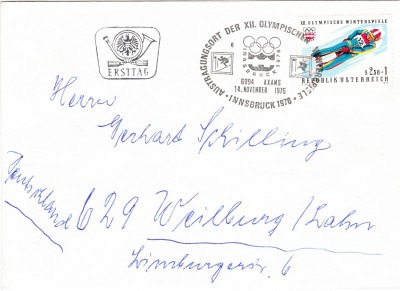 ERSTTAG
AUSTRAGUNGSORT DER XII. OLYMPISCHEN WINTERSPIELE
INNSBRUCK
6094 AXAMS
14. NOVEMBER 1975
INNSBRUCK 1976
XII. OLYMPISCHE WINTERSPIELE
S 2.50+1
REPUBLIK ÖSTERREICH
Herrn
Gerhart Schilling
Deutschland
629 Weilburg/Lahn
Limburgerstr. 6